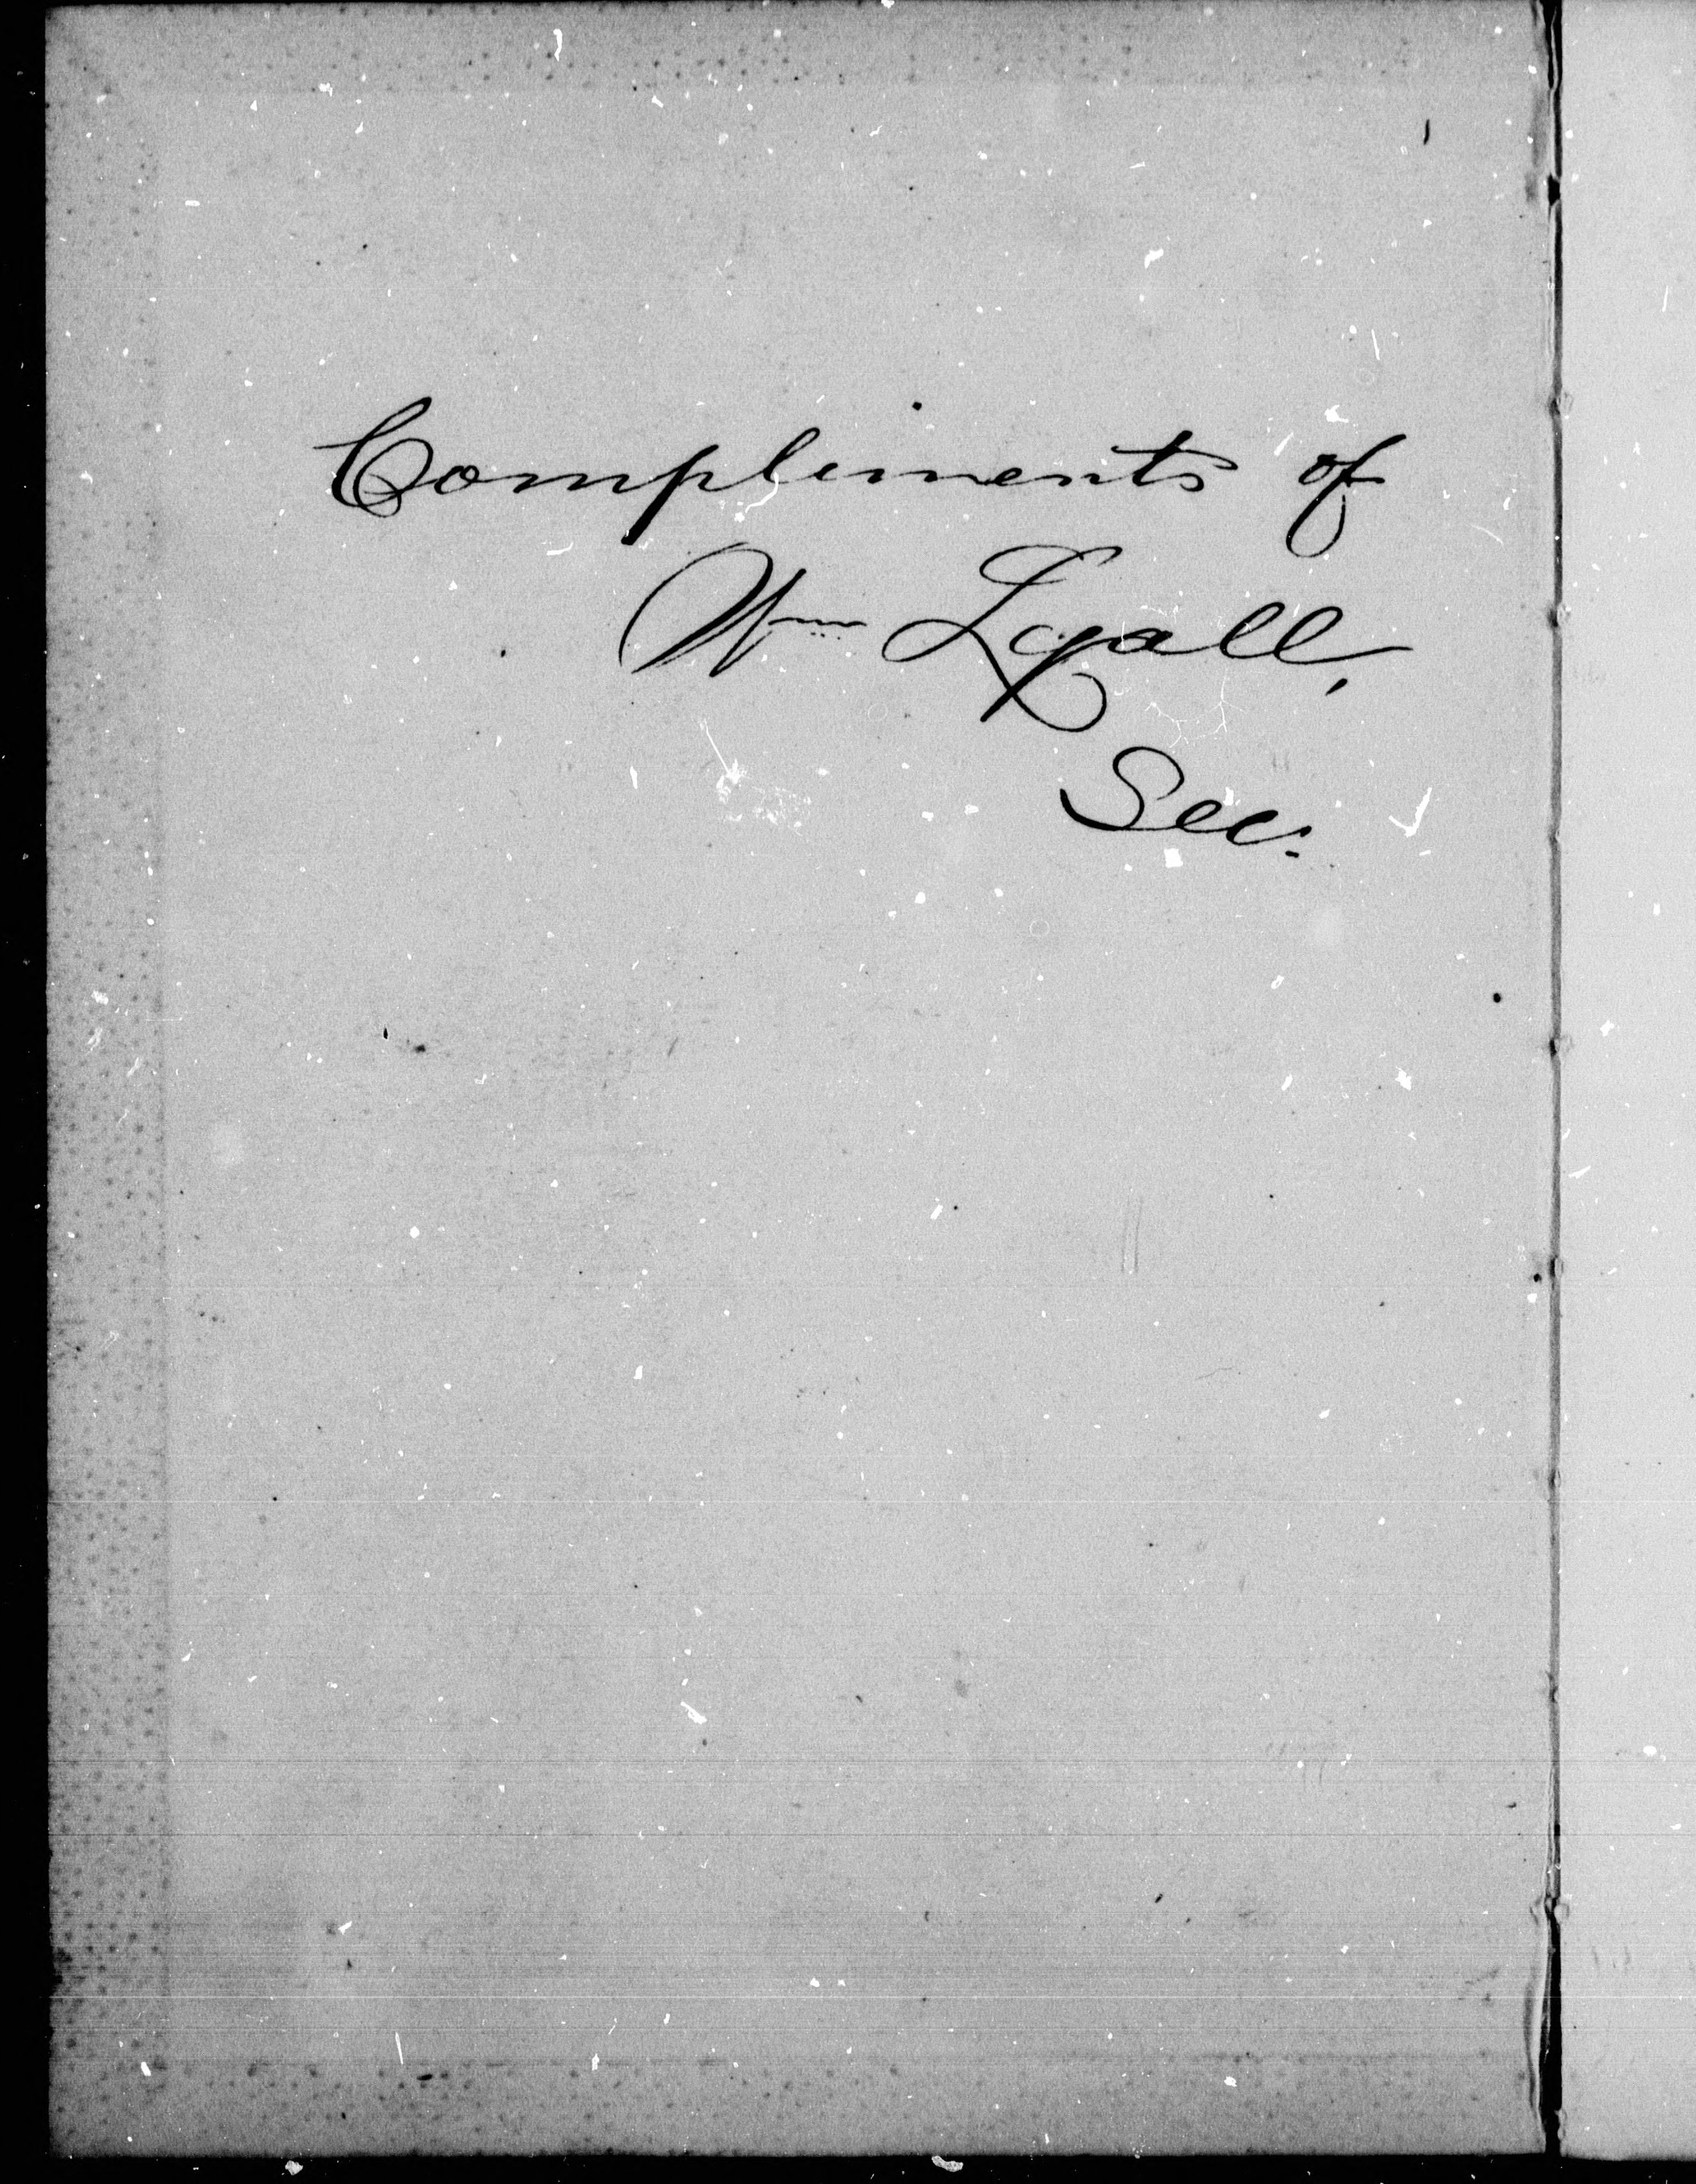 Compliments of
Wm Lyall,
Sec.